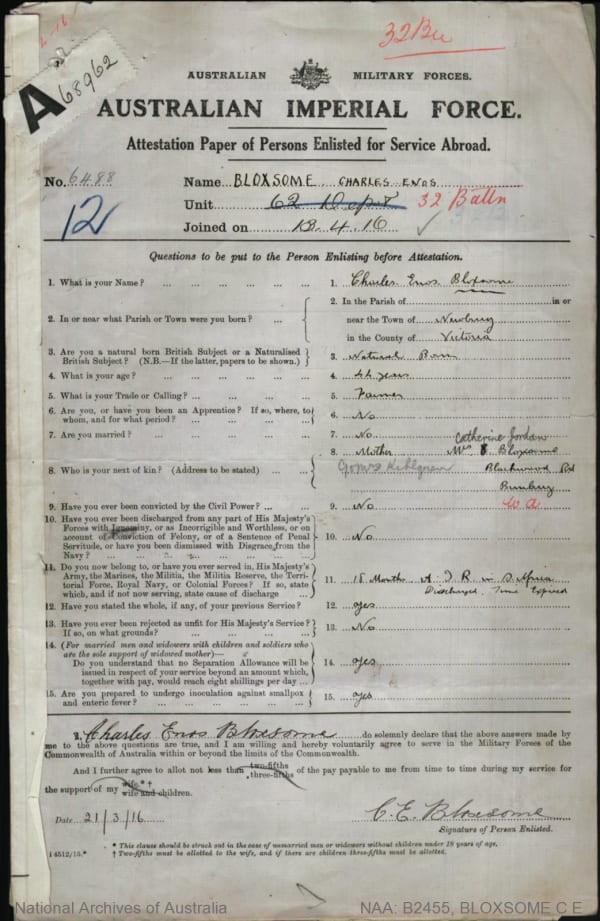 2-16
32 Btn
A 68962
AUSTRALIAN MILITARY FORCES.
AUSTRALIAN IMPERIAL FORCE.
Attestation Paper of Persons Enlisted for Service Abroad.
No. 6488 Name BLOXSOME CHARLES ENOS
12 Unit 62 Depot 32 Battn
Joined on 13.4.16
Questions to be put to the Person Enlisting before Attestation.
1. What is your Name? ... 1. Charles Enos Bloxsome
2. In or near what Parish or Town were you born? ... 2. In the Parish of in or
near the Town of Newbury
in the County of Victoria
3. Are you a natural born British Subject or a Naturalised British Subject? (N.B.—If the latter, papers to be shown.) 3. Natural Born
4. What is your age? ... 4. 44 years
5. What is your Trade or Calling? ... 5. Farmer
6. Are you, or have you been an Apprentice? If so, where, to whom, and for what period? ... 6. No
7. Are you married? ... 7. No
Catherine Jordan
8. Who is your next of kin? (Address to be stated) ... 8. Mother Mrs Bloxsome
Blackwood Rd
Bunbury
W A
9. Have you ever been convicted by the Civil Power? ... 9. No
10. Have you ever been discharged from any part of His Majesty's Forces with Ignominy, or as Incorrigible and Worthless, or on account of Conviction of Felony, or of a Sentence of Penal Servitude, or have you been dismissed with Disgrace from the Navy? ... 10. No
11. Do you now belong to, or have you ever served in, His Majesty's Army, the Marines, the Militia, the Militia Reserve, the Territorial Force, Royal Navy, or Colonial Forces? If so, state which, and if not now serving, state cause of discharge ... 11. 18 Months in S. Africa
Discharged. Time Expired
12. Have you stated the whole, if any, of your previous Service? 12. yes
13. Have you ever been rejected as unfit for His Majesty's Service? If so, on what grounds? ... 13. No
14. (For married men and widowers with children and soldiers who are the sole support of widowed mother)—
Do you understand that no Separation Allowance will be issued in respect of your service beyond an amount which, together with pay, would reach eight shillings per day ... 14. yes
15. Are you prepared to undergo inoculation against smallpox and enteric fever? ... 15. yes
I, Charles Enos Bloxsome do solemnly declare that the above answers made by
me to the above questions are true, and I am willing and hereby voluntarily agree to serve in the Military Forces of the
Commonwealth of Australia within or beyond the limits of the Commonwealth.
And I further agree to allot not less than two-fifths three-fifths of the pay payable to me from time to time during my service for
the support of my wife.*† wife and children.
Date 21/3/16 C. E. Bloxsome
Signature of Person Enlisted.
* This clause should be struck out in the case of unmarried men or widowers without children under 18 years of age.
14512/15.* † Two-fifths must be allotted to the wife, and if there are children three-fifths must be allotted.
National Archives of Australia NAA: B2455, BLOXSOME C E